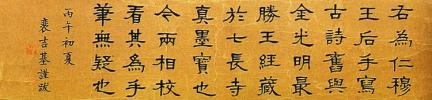 右為仁穆
王后手寫
古詩舊與
金光明最
勝王經藏
於七長寺
真墨寶也
今兩相校
看其為手
筆無疑也
丙午初夏
裵吉基謹跋